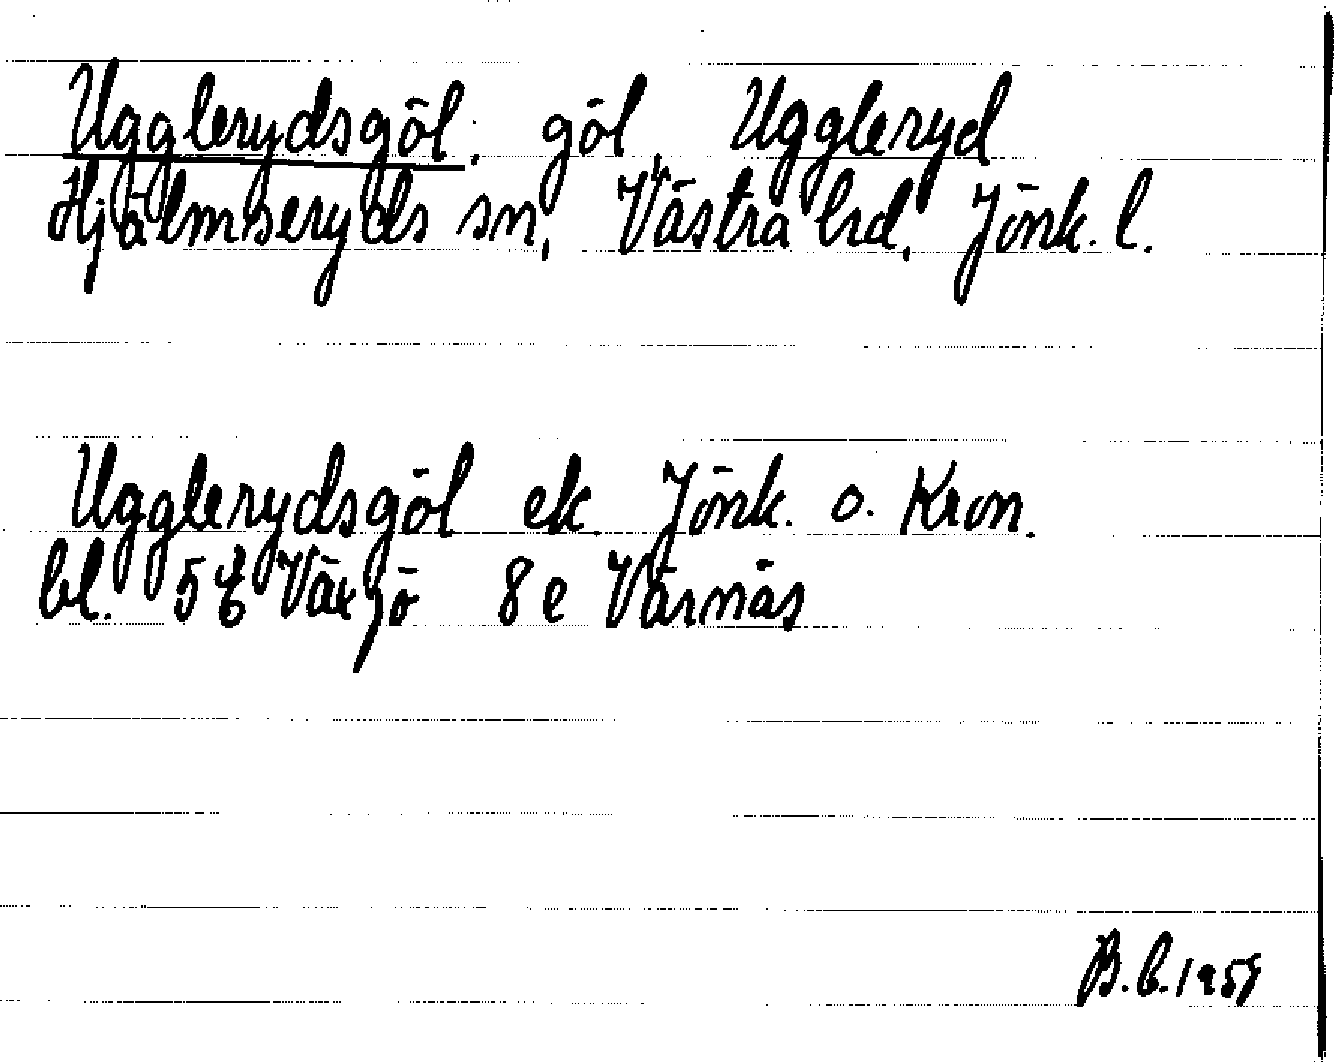 Ugglerydsgöl. göl, Uggleryd
Hjälmseryds sn, Västra hd, Jönk. l.
Ugglerydsgöl ek. Jönk. o. Kron.
bl. 5 E Växjö 8 e Värnäs
B.b.1959